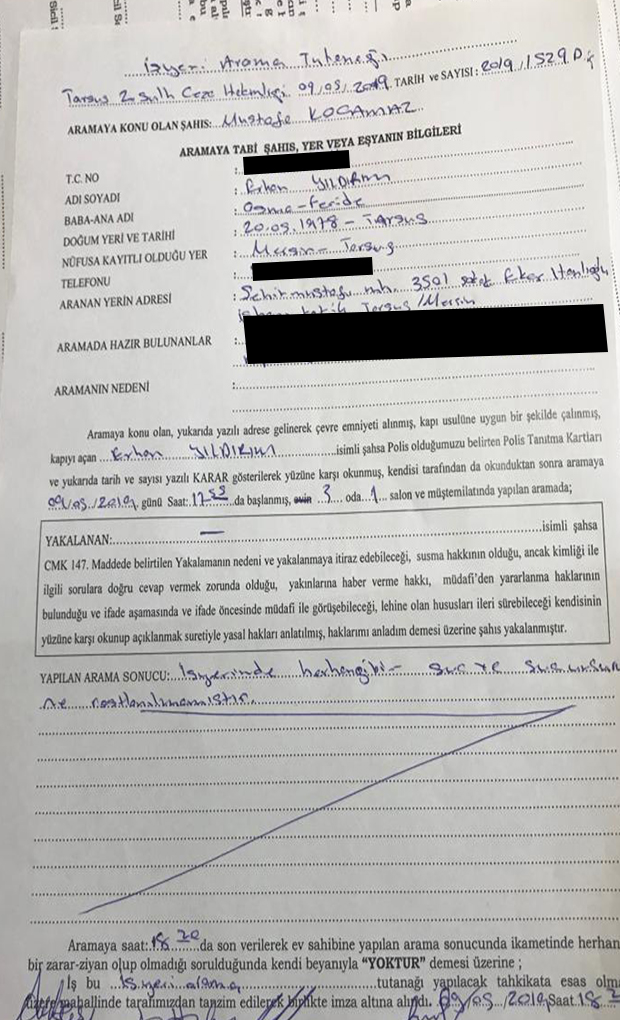 İşyeri Arama Tutanağı
Tarsus 2. Sulh Ceza Hakimliği 09/05/2019 TARİH ve SAYISI: 2019/1529 D.iş
ARAMAYA KONU OLAN ŞAHIS: Mustafa KOCAMAZ
ARAMAYA TABİ ŞAHIS, YER VEYA EŞYANIN BİLGİLERİ
T.C. NO :
ADI SOYADI : Erhan YILDIRIM
BABA-ANA ADI : Osma-Feride
DOĞUM YERİ VE TARİHİ : 20.09.1978 - Tarsus
NÜFUSA KAYITLI OLDUĞU YER : Mersin - Tarsus
TELEFONU
ARANAN YERİN ADRESİ : Şehitmustafa mh. 3501 sokak Eker
Tarsus/Mersin
ARAMADA HAZIR BULUNANLAR :
ARAMANIN NEDENİ :
Aramaya konu olan, yukarıda yazılı adrese gelinerek çevre emniyeti alınmış, kapı usulüne uygun bir şekilde çalınmış,
kapıyı açan Erhan YILDIRIM isimli şahsa Polis olduğumuzu belirten Polis Tanıtma Kartları
ve yukarıda tarih ve sayısı yazılı KARAR gösterilerek yüzüne karşı okunmuş, kendisi tarafından da okunduktan sonra aramaya
09/05/2019 günü Saat: 17 55 da başlanmış, evin 3 oda 1 salon ve müştemilatında yapılan aramada;
YAKALANAN: — isimli şahsa
CMK 147. Maddede belirtilen Yakalamanın nedeni ve yakalanmaya itiraz edebileceği, susma hakkının olduğu, ancak kimliği ile
ilgili sorulara doğru cevap vermek zorunda olduğu, yakınlarına haber verme hakkı, müdafi'den yararlanma haklarının
bulunduğu ve ifade aşamasında ve ifade öncesinde müdafi ile görüşebileceği, lehine olan hususları ileri sürebileceği kendisinin
yüzüne karşı okunup açıklanmak suretiyle yasal hakları anlatılmış, haklarımı anladım demesi üzerine şahıs yakalanmıştır.
YAPILAN ARAMA SONUCU: İşyerinde herhangibir suç ve suç unsuru
na rastlanılmamıştır.
Aramaya saat: 18 20 da son verilerek ev sahibine yapılan arama sonucunda ikametinde herhan
bir zarar-ziyan olup olmadığı sorulduğunda kendi beyanıyla "YOKTUR" demesi üzerine ;
İş bu İşyeri arama tutanağı yapılacak tahkikata esas olma
üzere mahallinde tarafımızdan tanzim edilerek birlikte imza altına alındı. 09/05/2019 Saat 18